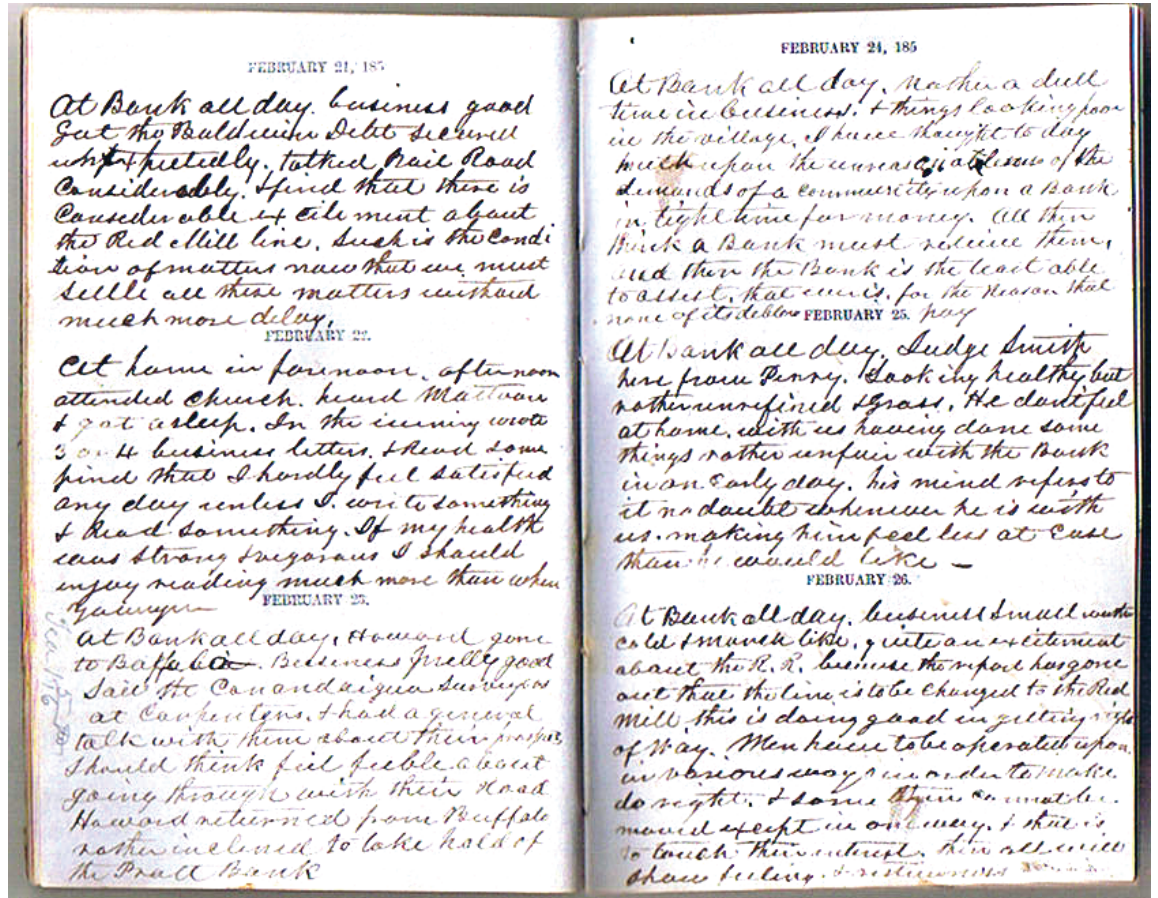 FEBRUARY 21, 185
At Bank all day. business good
Got the Baldwin Debt secured
unexpectedly. talked Rail Road
Considerably. I find that there is
Considerable excitement about
the Red Mill line. Such is the Condi
tion of matters now that we must
settle all these matters without
much more delay.
FEBRUARY 22.
At home in forenoon. afternoon
attended Church. heard
& got asleep. In the evening wrote
3 or 4 business letters. & Read some
find that I hardly feel satisfied
any day unless I write something
& Read something. If my health
was strong & vigorous I should
enjoy reading much more than when
younger
FEBRUARY 23.
At Bank all day. Howard gone
to Buffalo. Business pretty good
Said the Canandaigua Surveyors
at Carpenters. I had a general
talk with them about their prospects
should think feel feeble about
going through with their Road
Howard returned from Buffalo
rather inclined to take hold of
the Pratt Bank
FEBRUARY 24, 185
At Bank all day. Rather a dull
time in business. & things looking poor
in the village. I have thought to day
much upon the unreasonableness of the
demands of a community upon a Bank
in tight time for money. All then
think a Bank must relieve them,
and then the Bank is the least able
to assist. that ever is. for the Reason that
none of its debtors pay
FEBRUARY 25.
At Bank all day. Judge Smith
here from Perry. Looking healthy but
rather unrefined & Gross. He dont feel
at home. with us having done some
things rather unfair with the Bank
in an Early day. his mind refers to
it no doubt whenever he is with
us. making him feel less at Ease
than he would like —
FEBRUARY 26.
At Bank all day. business Small
cold & March like. quite an excitement
about the R.R. because the report has gone
out that the line is to be changed to the Red
Mill this is doing good in getting right
of Way. Men have to be operated upon
in various ways in order to make
do right. & some cannot be
moved except in one way. & that is
to touch their interest. then all will
show feeling. &